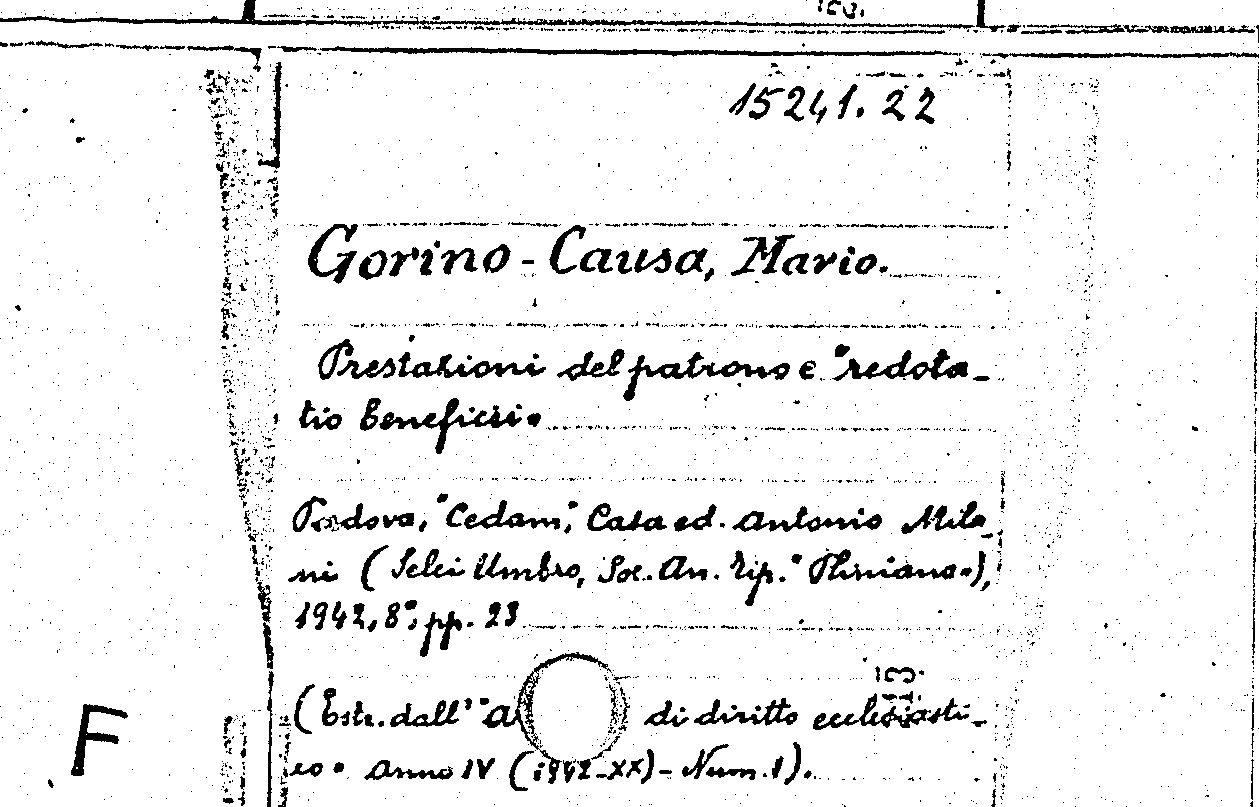 15241.22
Gorino-Causa, Mario.
Prestazioni del patrono e "redota-
tio beneficii".
Padova, "Cedam", Casa ed. Antonio Mila-
ni (Selci Umbro, Soc. An. Tip. "Pliniana"),
1942, 8°, pp. 23
(Estr. dall' "A di diritto ecclesiasti-
co" Anno IV (1942-XX) - Num. 1).
F